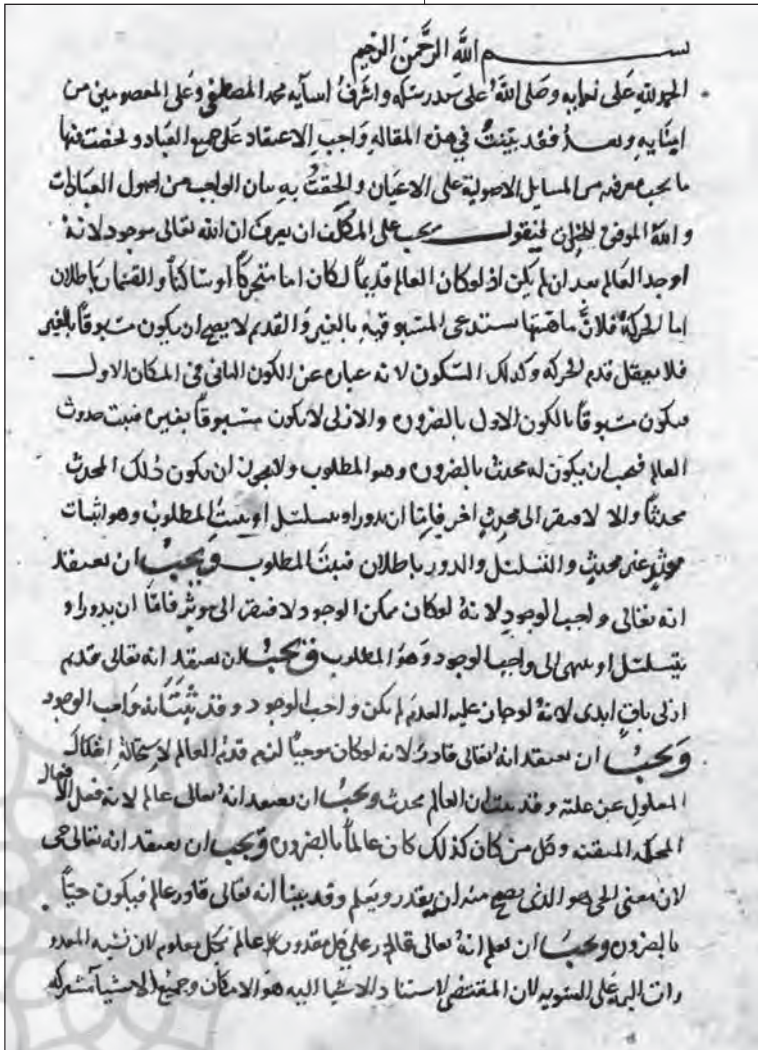 بســـــــم الله الرَّحمن الرحيم
الحمد لله على نعمايه وصَلى اللهُ على سَيد رسله واشرفُ انبيآيه محمد المصطفى وعَلى المعصومين من
ابنايه وبعــدُ فقد بيّنتُ في هذه المقاله وَاجب الاعتقاد عَلى جميع العبَاد ولخصت فيها
ما يجب معرفته من المسايل الاصولية على الاعيان والحقتُ به بيان الواجب من اصول العبَادات
والله الموفق للخيرات فنقولــــ يجب على المكلّف ان يعرف ان الله تعالى موجود لانهُ
اوجد العَالم بعد ان لم يكن اذ لو كان العالم قديمًا لكان اما متحركًا او سَاكنًا والقسمان بَاطلان
اما الحركةُ فلانَّ ماهيتها تستدعى المسبوقيه بالغير وَالقديم لا يصح ان يكون مسَبوقًا بالغير
فلا يعقل قدم الحركه وكذلك السّكون لانه عباره عن الكون الثاني في المكان الاولــ
فيكون مسَبوقًا بالكون الاول بالضروره والازلى لا يكون مسَبوقًا بغيره فثبت حدوث
العالم فيجب ان يكون له محدث بالضروره وهو المطلوب ولا يجوز ان يكون ذلك المحدث
محدثًا والا لافتقر الى محدثٍ اخر فاِمّا ان يدور او يتسلسَل او يثبتُ المطلوب وهو اثبات
موثرٍ غير محدثٍ والتسلسَل والدور بَاطلان فثبتَ المطلوبــ ويَجبُ ان يعتقد
انه تعَالى واجب الوجودِ لانهُ لو كان ممكن الوجود لافتقر الى موثر فامّا ان يدور او
يتسلسَل او ينتهى الى واجب الوجود وَهوَ المطلوب ويَجبُ ان يعتقد انه تعَالى قديم
ازلى باقٍ ابدى لانهُ لو جاز عليه العدمُ لم يكن واجب الوجود وقد ثبتَ انه وَاجب الوجود
وَيجبُ ان يعتقد انه تعَالى قادرٌ لانه لو كان موجبًا لزم قدمُ العالم لاِستحالةِ انفكاك
المعلولِ عن علته وقد بينا ان العالم محدث ويجبُ ان يعتقد انهُ تعالى عالم لانه فعل الافعال
المحكمه المتقنه وكل من كان كذلك كان عالمًا بالضروره وَيجب ان يعتقد انه تعَالى حى
لان معنى الحى هو الذى يصح منه ان يقدر ويَعلم وقد بينا انه تعَالى قادر عالم فيكون حيّاً
بالضروره ويجبُ ان يعلم انهُ تعَالى قادر على كل مقدور عالم بكل معلوم لان نسبه المقدو
رات اليه على السويه لان المقتضى لاستناد الاشيا اليه هو الامكان وجميع الاشيآ مشتركه